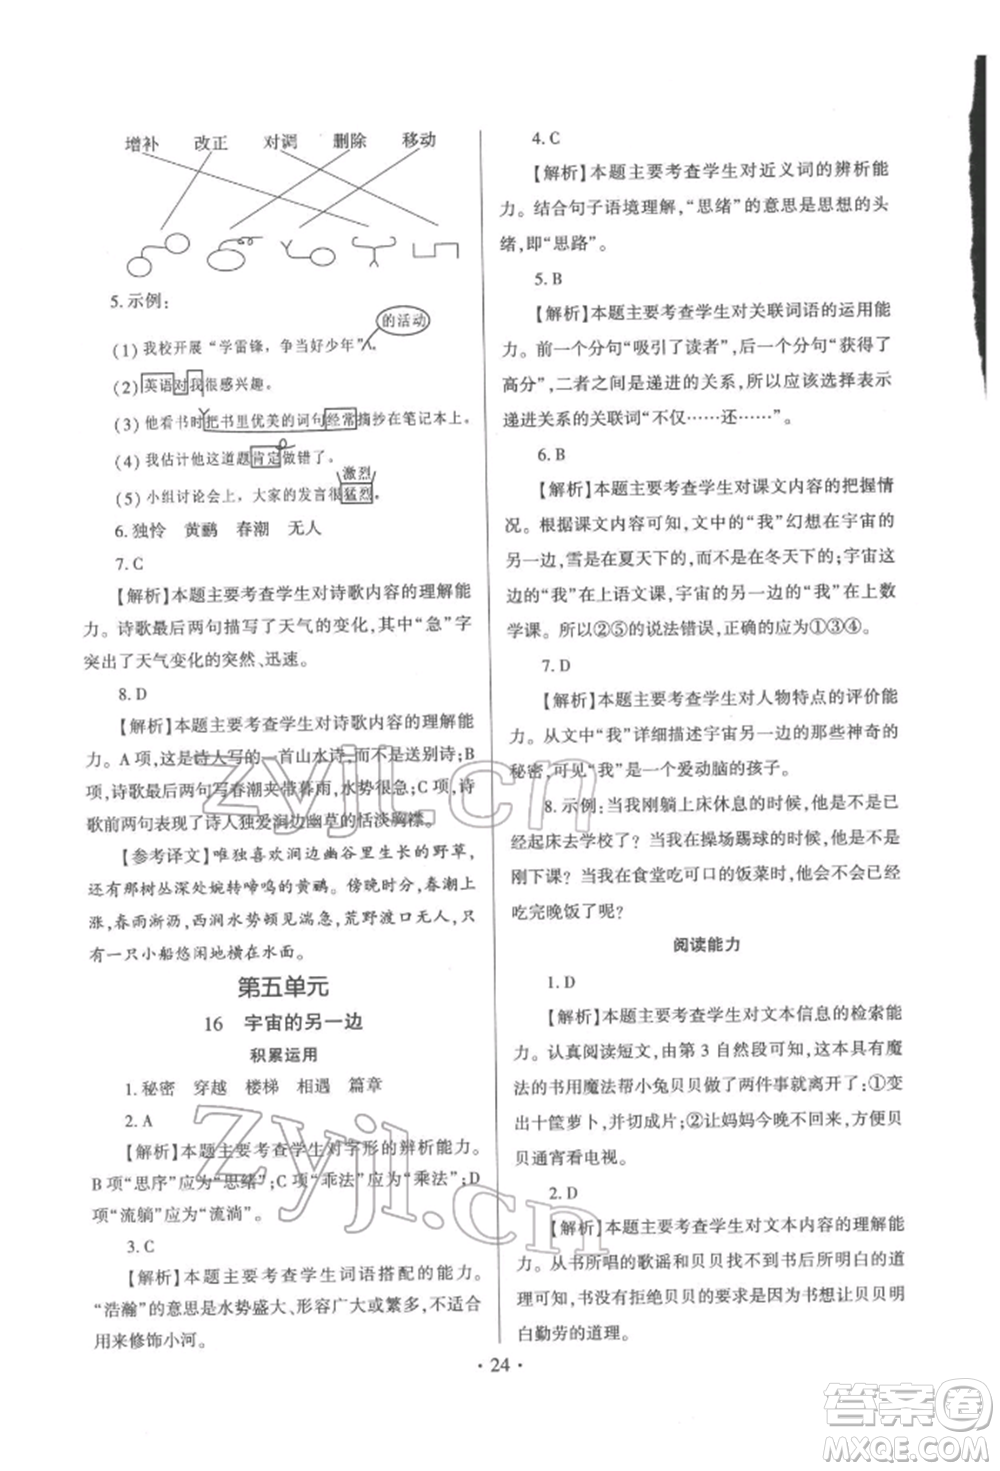 增补 改正 对调 删除 移动
5. 示例：
的活动
(1) 我校开展“学雷锋，争当好少年”。
(2) 英语对我很感兴趣。
(3) 他看书时把书里优美的词句经常摘抄在笔记本上。
(4) 我估计他这道题肯定做错了。
激烈
(5) 小组讨论会上，大家的发言很猛烈。
6. 独怜 黄鹂 春潮 无人
7. C
【解析】本题主要考查学生对诗歌内容的理解能
力。诗歌最后两句描写了天气的变化，其中“急”字
突出了天气变化的突然、迅速。
8. D
【解析】本题主要考查学生对诗歌内容的理解能
力。A 项，这是诗人写的一首山水诗，而不是送别诗；B
项，诗歌后两句写春潮夹带暮雨，水势很急；C 项，诗
歌前两句表现了诗人独爱涧边幽草的恬淡胸襟。
【参考译文】唯独喜欢涧边幽谷里生长的野草，
还有那树丛深处婉转啼鸣的黄鹂。傍晚时分，春潮上
涨，春雨淅沥，西涧水势顿见湍急，荒野渡口无人，只
有一只小船悠闲地横在水面。
第五单元
16 宇宙的另一边
积累运用
1. 秘密 穿越 楼梯 相遇 篇章
2. A
【解析】本题主要考查学生对字形的辨析能力。
B 项“思序”应为“思绪”；C 项“乖法”应为“乘法”；D
项“流躺”应为“流淌”。
3. C
【解析】本题主要考查学生词语搭配的能力。
“浩瀚”的意思是水势盛大、形容广大或繁多，不适合
用来修饰小河。
4. C
【解析】本题主要考查学生对近义词的辨析能
力。结合句子语境理解，“思绪”的意思是思想的头
绪，即“思路”。
5. B
【解析】本题主要考查学生对关联词语的运用能
力。前一个分句“吸引了读者”，后一个分句“获得了
高分”，二者之间是递进的关系，所以应该选择表示
递进关系的关联词“不仅……还……”。
6. B
【解析】本题主要考查学生对课文内容的把握情
况。根据课文内容可知，文中的“我”幻想在宇宙的
另一边，雪是在夏天下的，而不是在冬天下的；宇宙这
边的“我”在上语文课，宇宙的另一边的“我”在上数
学课。所以②⑤的说法错误，正确的应为①③④。
7. D
【解析】本题主要考查学生对人物特点的评价能
力。从文中“我”详细描述宇宙另一边的那些神奇的
秘密，可见“我”是一个爱动脑的孩子。
8. 示例：当我刚躺上床休息的时候，他是不是已
经起床去学校了？当我在操场踢球的时候，他是不是
刚下课？当我在食堂吃可口的饭菜时，他会不会已经
吃完晚饭了呢？
阅读能力
1. D
【解析】本题主要考查学生对文本信息的检索能
力。认真阅读短文，由第 3 自然段可知，这本具有魔
法的书用魔法帮小兔贝贝做了两件事就离开了：①变
出十筐萝卜，并切成片；②让妈妈今晚不回来，方便贝
贝通宵看电视。
2. D
【解析】本题主要考查学生对文本内容的理解能
力。从书所唱的歌谣和贝贝找不到书后所明白的道
理可知，书没有拒绝贝贝的要求是因为书想让贝贝明
白勤劳的道理。
· 24 ·
zyjl.cn
zyjl.cn
答案圈
MXQE.COM